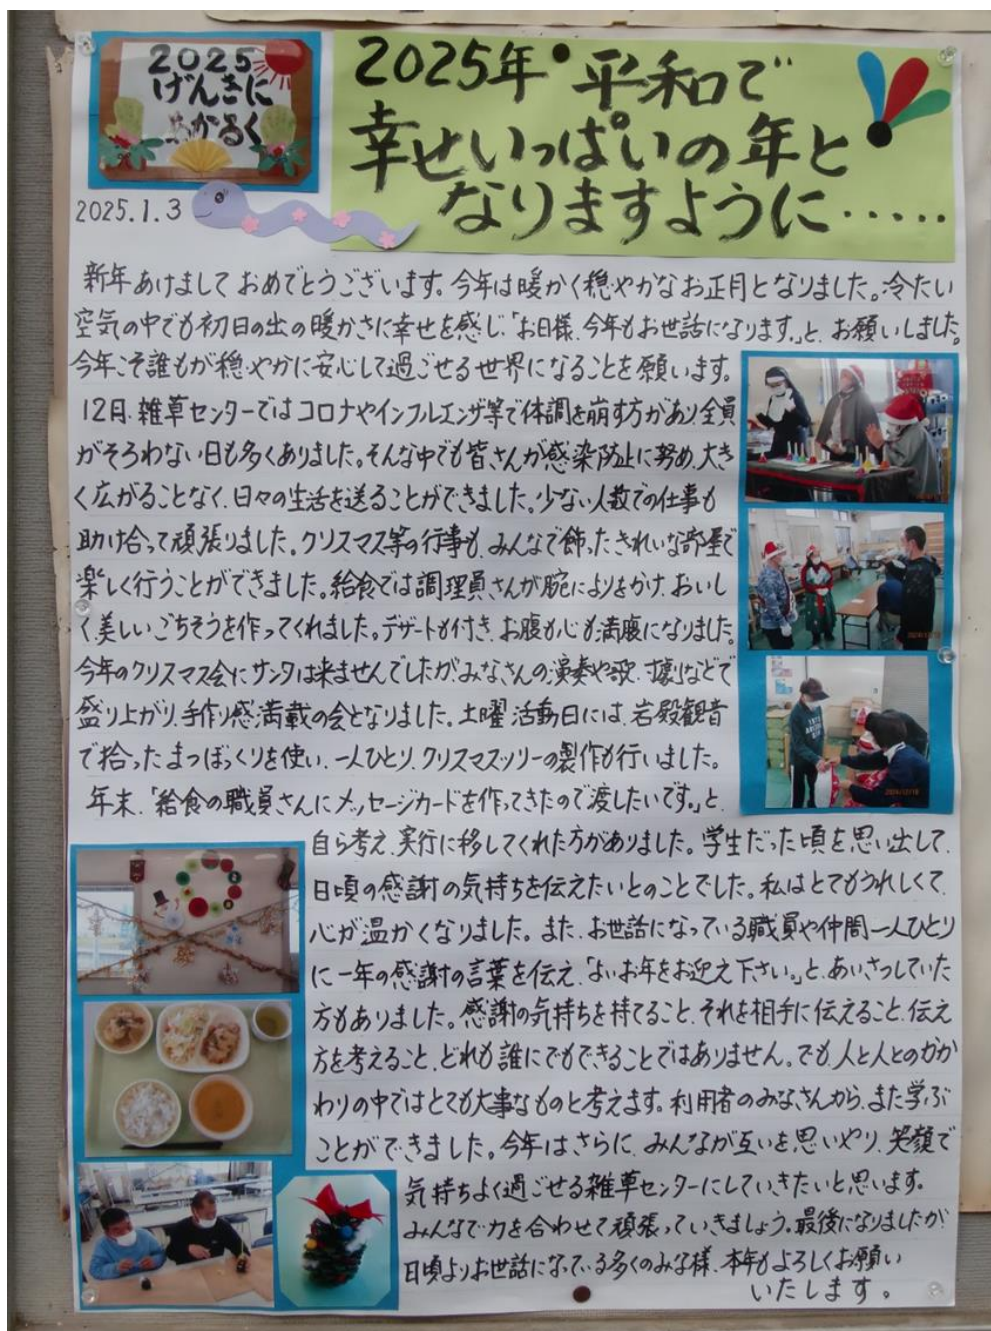 2025
げんきに
あかるく
2025年 平和で
幸せいっぱいの年と
なりますように・・・・・
2025.1.3
新年あけましておめでとうございます。今年は暖かく穏やかなお正月となりました。冷たい
空気の中でも初日の出の暖かさに幸せを感じ「お日様、今年もお世話になります。」と、お願いしました。
今年こそ誰もが穏やかに安心して過ごせる世界になることを願います。
12月、雑草センターではコロナやインフルエンザ等で体調を崩す方があり、全員
がそろわない日も多くありました。そんな中でも皆さんが感染防止に努め、大き
く広がることなく、日々の生活を送ることができました。少ない人数での仕事も
助け合って頑張りました。クリスマス等の行事も、みんなで飾ったきれいな部屋で
楽しく行うことができました。給食では調理員さんが腕によりをかけ、おいし
く美しいごちそうを作ってくれました。デザートも付き、お腹も心も満腹になりました。
今年のクリスマス会にサンタは来ませんでしたが、みなさんの演奏や歌、寸劇などで
盛り上がり、手作り感満載の会となりました。土曜活動日には、岩殿観音
で拾ったまつぼっくりを使い、一人ひとり、クリスマスツリーの製作も行いました。
年末、「給食の職員さんにメッセージカードを作ってきたので渡したいです。」と、
自ら考え、実行に移してくれた方がありました。学生だった頃を思い出して、
日頃の感謝の気持ちを伝えたいとのことでした。私はとてもうれしくて、
心が温かくなりました。また、お世話になっている職員や仲間一人ひとり
に一年の感謝の言葉を伝え、「よいお年をお迎え下さい。」と、あいさつしていた
方もありました。感謝の気持ちを持てること、それを相手に伝えること、伝え
方を考えること、どれも誰にでもできることではありません。でも、人と人とのかか
わりの中ではとても大事なものと考えます。利用者のみなさんから、また学ぶ
ことができました。今年はさらに、みんなが互いを思いやり、笑顔で
気持ちよく過ごせる雑草センターにしていきたいと思います。
みんなで力を合わせて頑張っていきましょう。最後になりましたが
日頃よりお世話になっている多くのみな様、本年もよろしくお願い
いたします。